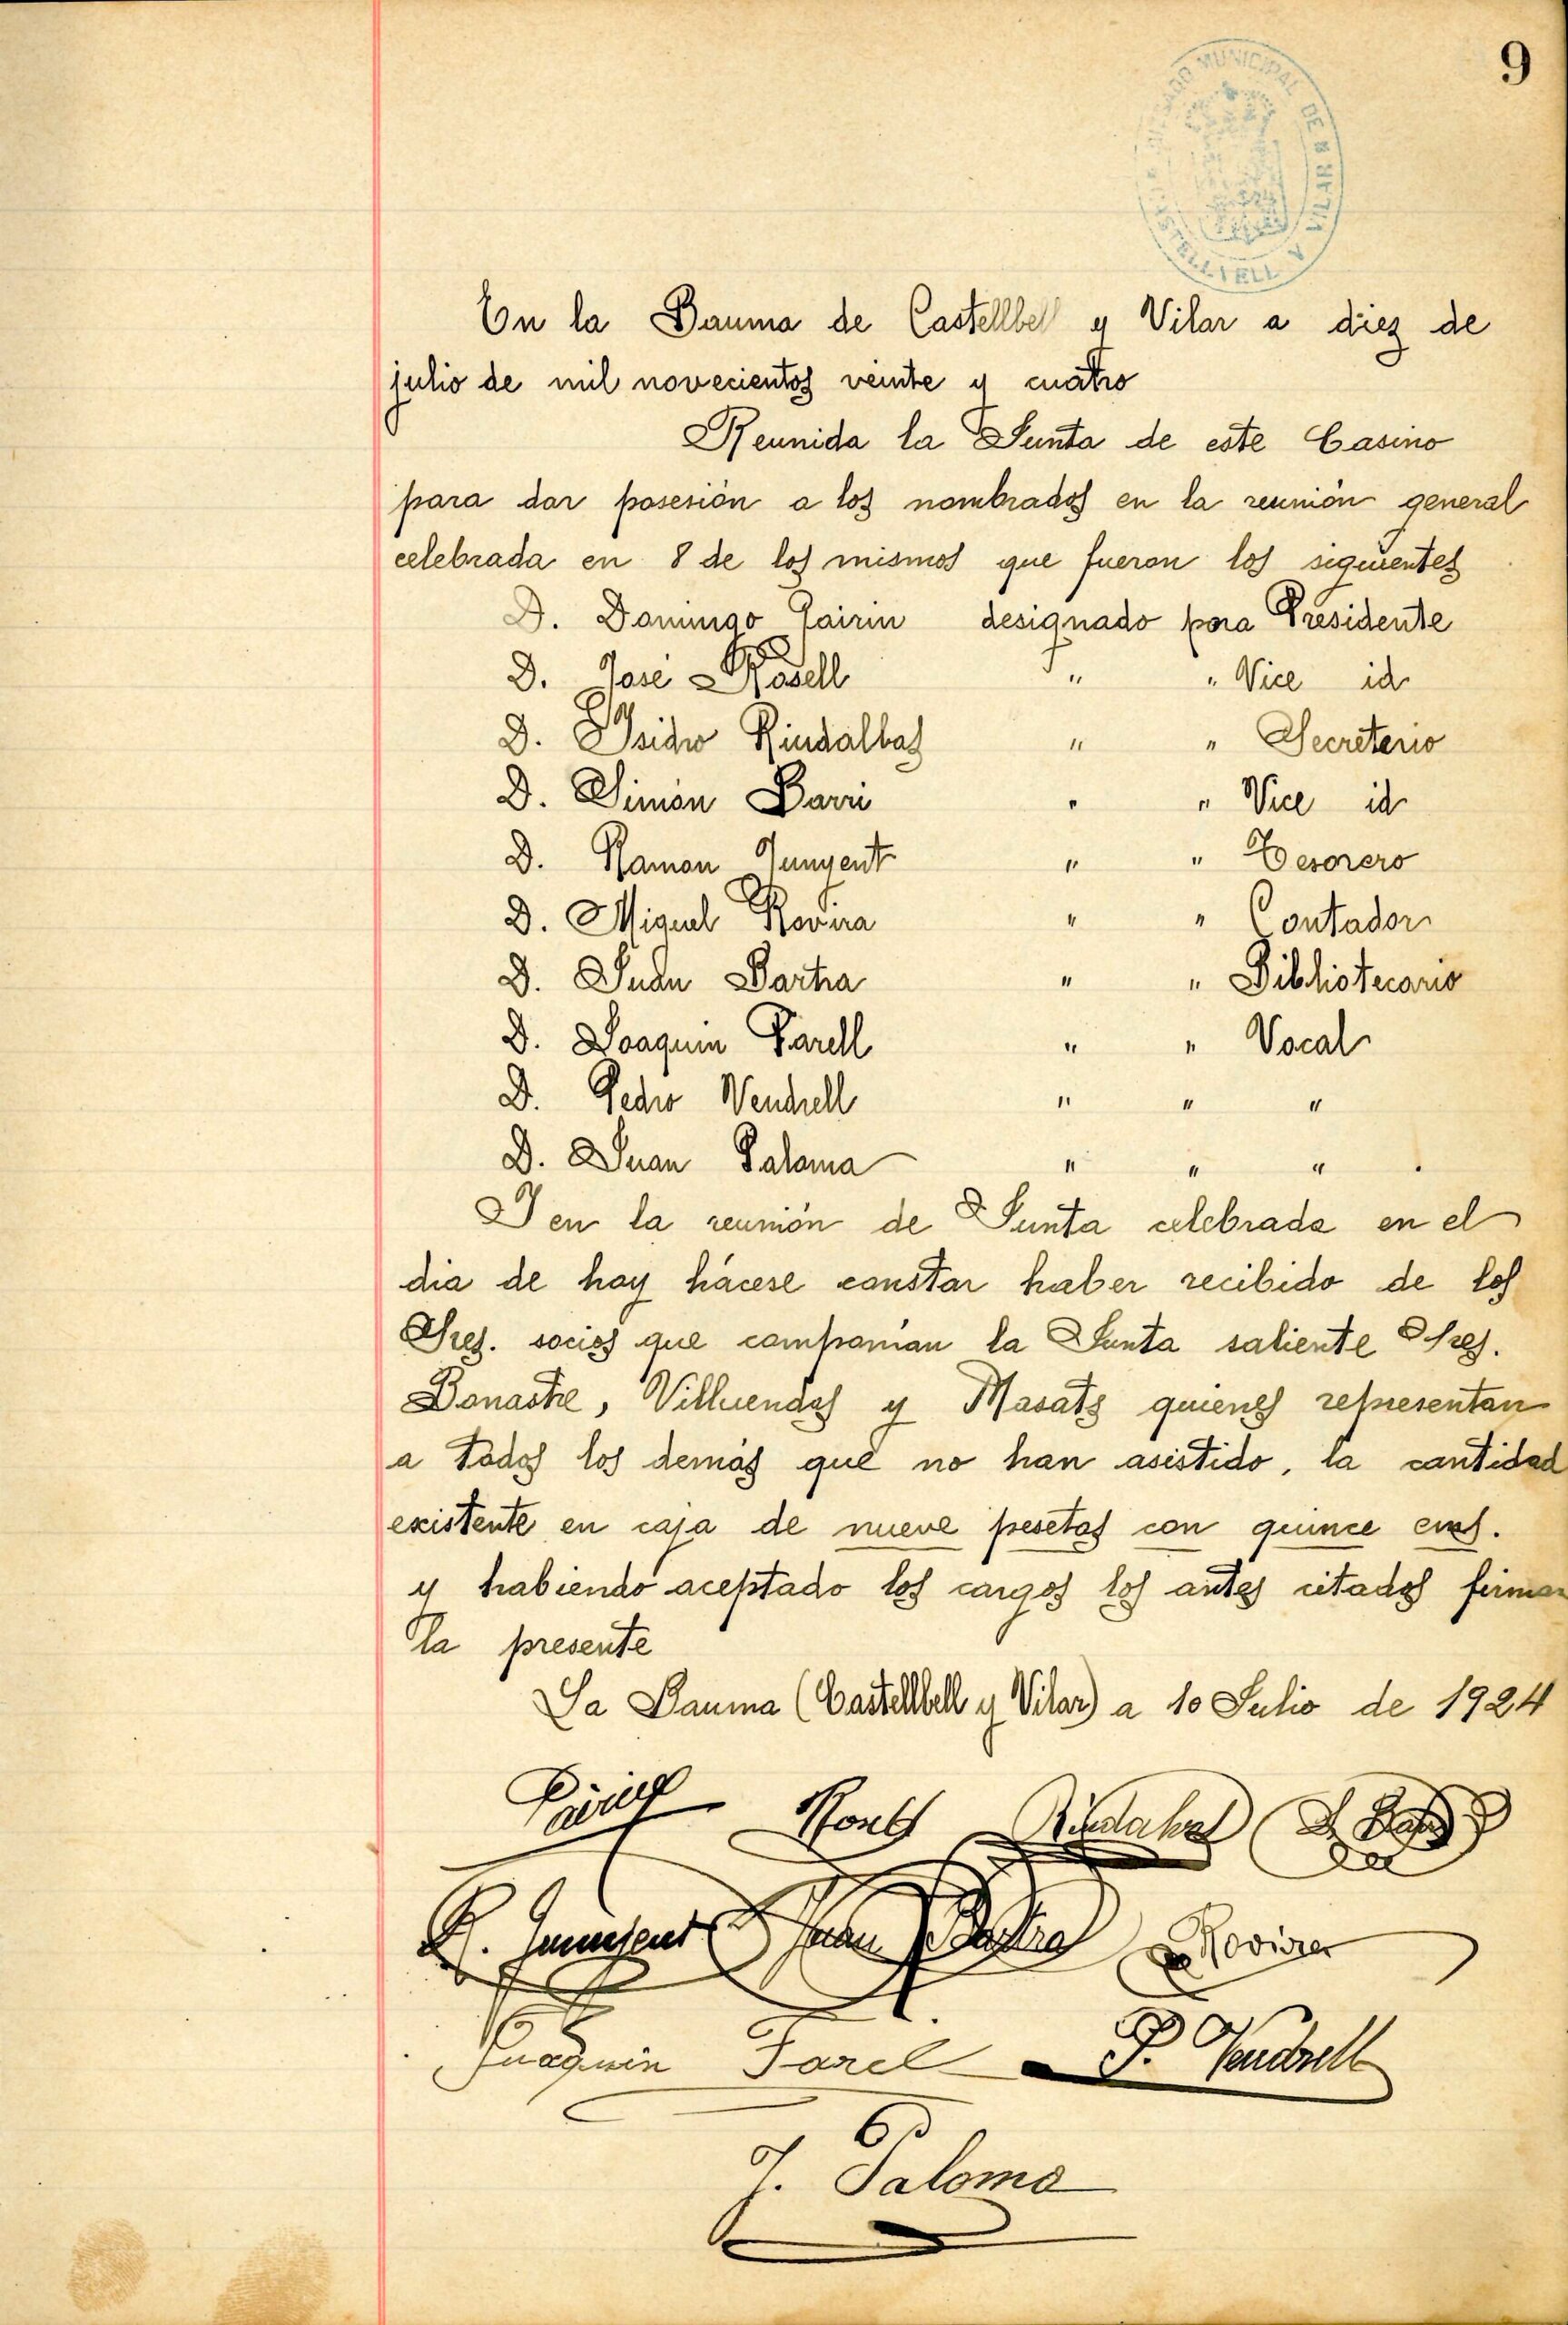 9
MUNICIPAL DE
En la Bauma de Castellbell y Vilar a diez de
julio de mil novecientos veinte y cuatro
Reunida la Junta de este Casino
para dar posesión a los nombrados en la reunión general
celebrada en 8 de los mismos que fueron los siguientes
D. Domingo Pairin designado para Presidente
D. José Rosell " " Vice id
D. Isidro Riudalbas " " Secretario
D. Simón Barri " " Vice id
D. Ramon Junyent " " Tesorero
D. Miguel Rovira " " Contador
D. Juan Bartra " " Bibliotecario
D. Joaquin Farell " " Vocal
D. Pedro Vendrell " " "
D. Juan Paloma " " " .
I en la reunión de Junta celebrada en el
dia de hoy hácese constar haber recibido de los
Sres. socios que componían la Junta saliente Sres.
Bonastre, Villuendas y Masats quienes representan
a todos los demás que no han asistido, la cantidad
existente en caja de nueve pesetas con quince cms.
y habiendo aceptado los cargos los antes citados firman
la presente
La Bauma (Castellbell y Vilar) a 10 Julio de 1924
Rosell Riudalbas
R. Junyent Juan Bartra Rovira
Juaquin Farell P. Vendrell
J. Paloma